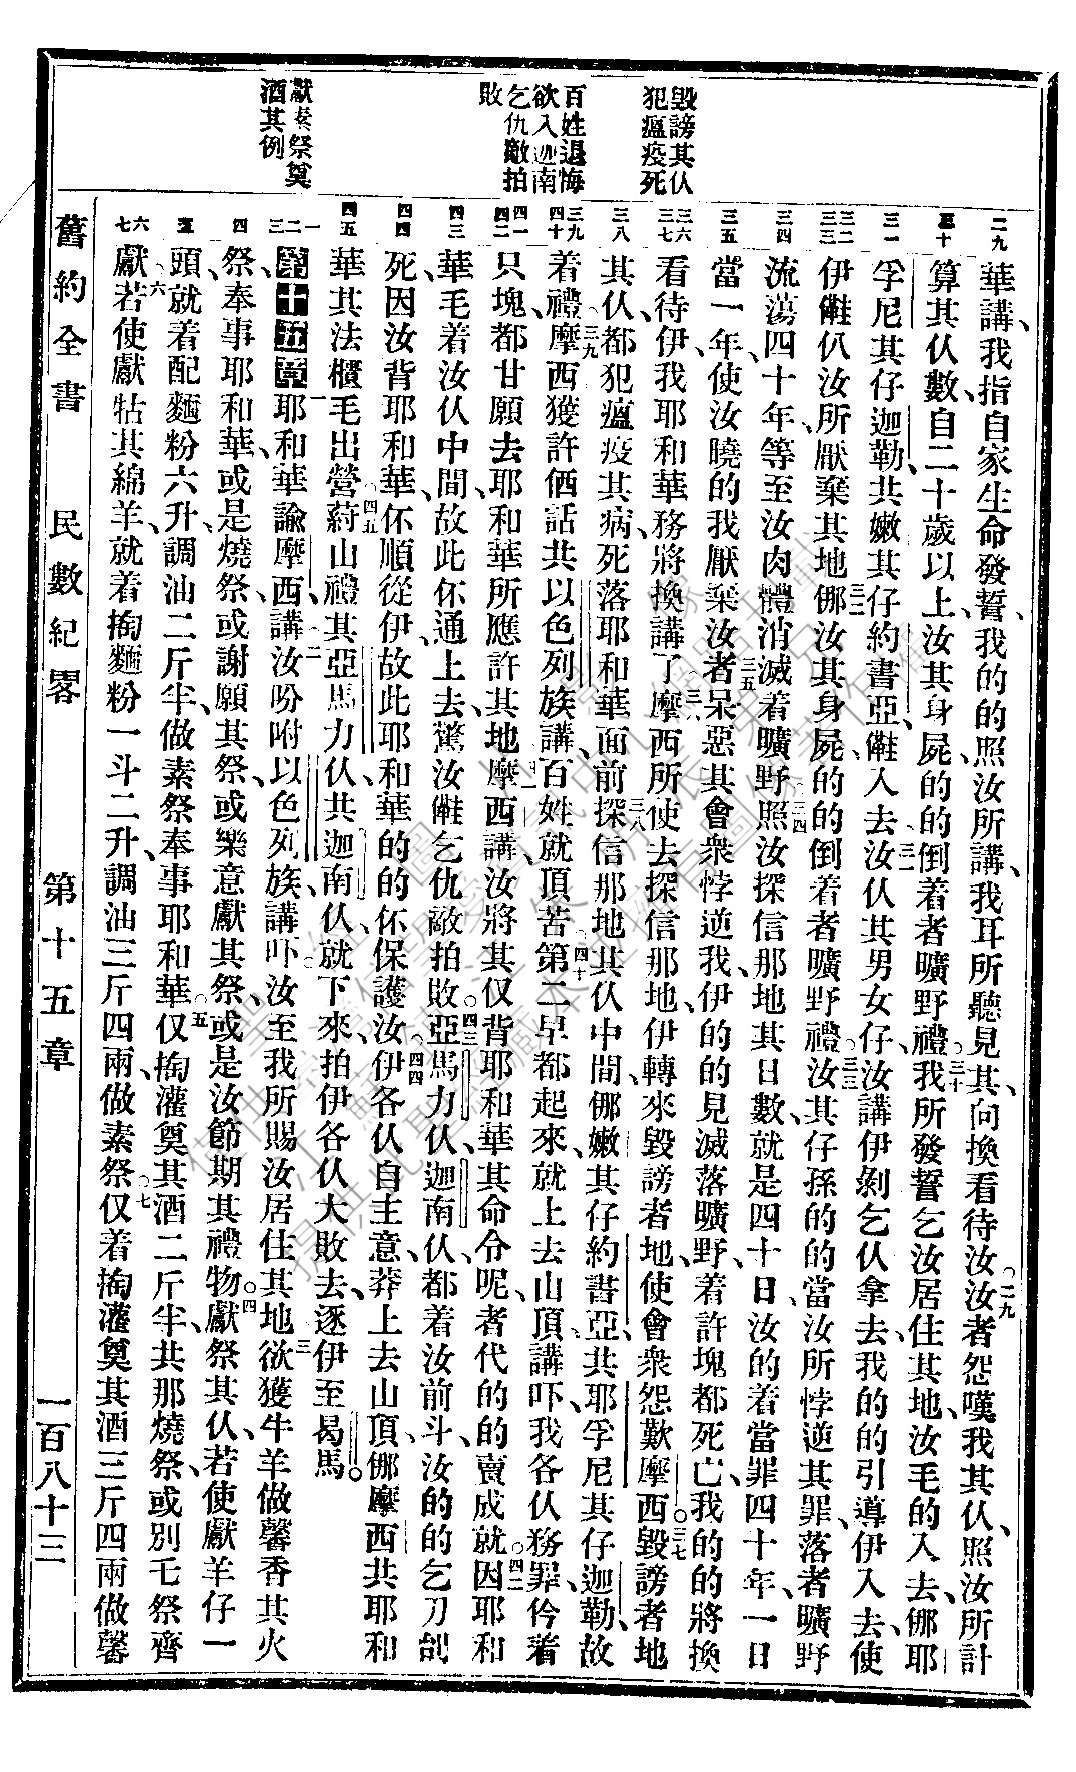 毀謗其仈
犯瘟疫死
百姓退悔
欲入迦南
乞仇敵拍
敗
獻素祭奠
酒其例
二九
三十
三一
三二
三三
三四
三五
三六
三七
三八
三九
四十
四一
四二
四三
四四
四五
一
二
三
四
五
六
七
華講、我指自家生命發誓、我的的照汝所講、我耳所聽見其、向換看待汝、○二九汝者怨嘆我其仈、照汝所計
算其仈數、自二十歲以上、汝其身屍的的倒着者曠野禮、○三十我所發誓乞汝居住其地、汝毛的入去、㑚耶
孚尼其仔迦勒、共嫩其仔約書亞、㒰入去、三一汝仈其男女仔、汝講伊剝乞仈拿去、我的的引導伊入去、使
伊㒰仈汝所厭棄其地、三二㑚汝其身屍的的倒着者曠野禮、○三三汝其仔孫的的當汝所悖逆其罪、落者曠野
流蕩四十年、等至汝肉體消滅着曠野、三四照汝探信那地其日數、就是四十日、汝的着當罪四十年、一日
當一年、使汝曉的我厭棄汝、三五者呆惡其會衆悖逆我、伊的的見滅落曠野、着許塊都死亡、我的的將換
看待伊、我耶和華務將換講了、三六摩西所使去探信那地、伊轉來毀謗者地、使會衆怨歎摩西、○三七毀謗者地
其仈、都犯瘟疫其病、死落耶和華面前、三八探信那地其仈中間、㑚嫩其仔約書亞、共耶孚尼其仔迦勒、故
着禮、○三九摩西獲許価話共以色列族講、百姓就頂苦、○四十第二早都起來、就上去山頂、講吓、我各仈務罪、仱着
只塊、都甘願去耶和華所應許其地、四一摩西講、汝將其仅背耶和華其命令呢、者代的的賣成就、○四二因耶和
華毛着汝仈中間、故此伓通上去、驚汝㒰乞仇敵拍敗、○四三亞馬力仈、迦南仈、都着汝前斗、汝的的乞刀刣
死、因汝背耶和華、伓順從伊、故此耶和華的的伓保護汝、○四四伊各仈自主意、莽上去山頂、㑚摩西共耶和
華其法櫃毛出營、○四五蒔山禮其亞馬力仈、共迦南仈、就下來拍伊各仈大敗去、逐伊至曷馬。
第十五章 一耶和華諭摩西講、二汝吩咐以色列族講吓、○汝至我所賜汝居住其地、三欲獲牛羊做馨香其火
祭、奉事耶和華、或是燒祭、或謝願其祭、或樂意獻其祭、或是汝節期其禮物、○四獻祭其仈、若使獻羊仔一
頭、就着配麵粉六升、調油二斤半、做素祭、奉事耶和華、○五仅掏灌奠其酒二斤半、共那燒祭、或別乇祭齊
獻、○六若使獻牯其綿羊、就着掏麵粉一斗二升、調油三斤四兩、做素祭、○七仅着掏灌奠其酒三斤四兩、做馨
舊約全書　民數紀畧　第十五章　一百八十三